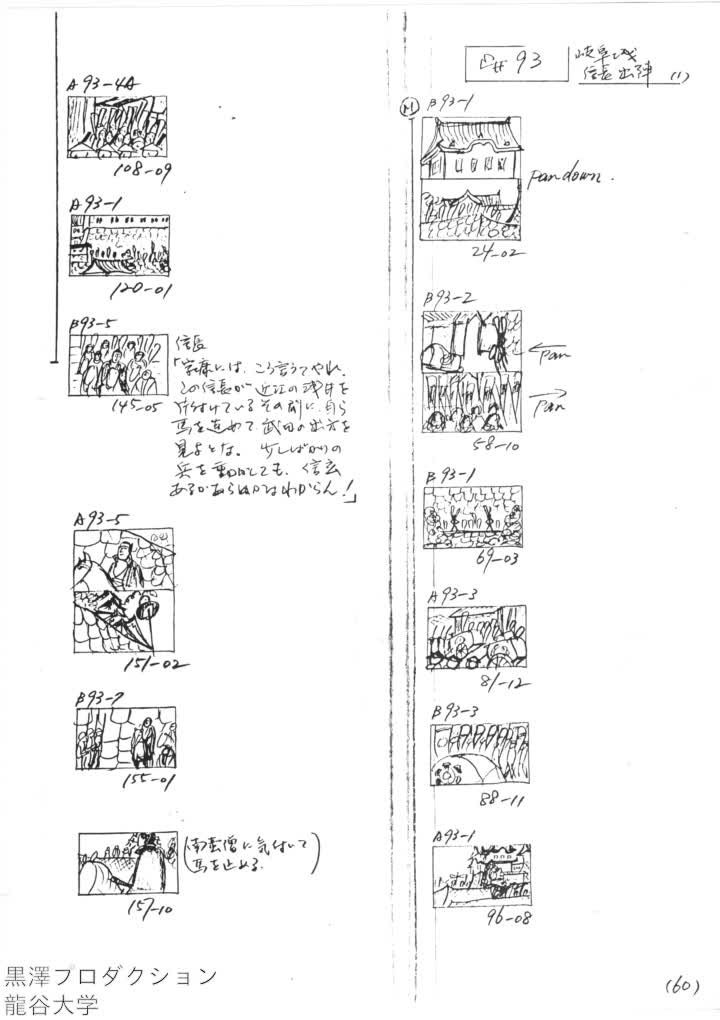 #93
岐阜城
信長出陣 (1)
M
B93-1
Pan down.
24-02
B93-2
← Pan
→ Pan
58-10
B93-1
69-03
A93-3
81-12
B93-3
88-11
A93-1
96-08
A93-4A
108-09
A93-1
120-01
B93-5
145-05
信長
「家康には、こう言うてやれ、
この信長が近江の浅井を
片付けているその前に、自ら
馬を進めて武田の出方を
見よとな。少しばかりの
兵を動かしても、信玄
あるかあらぬかはわからん!」
A93-5
151-02
B93-7
155-01
(南蛮僧に気付いて
馬を止める.)
157-10
(60)
黒澤プロダクション
龍谷大学